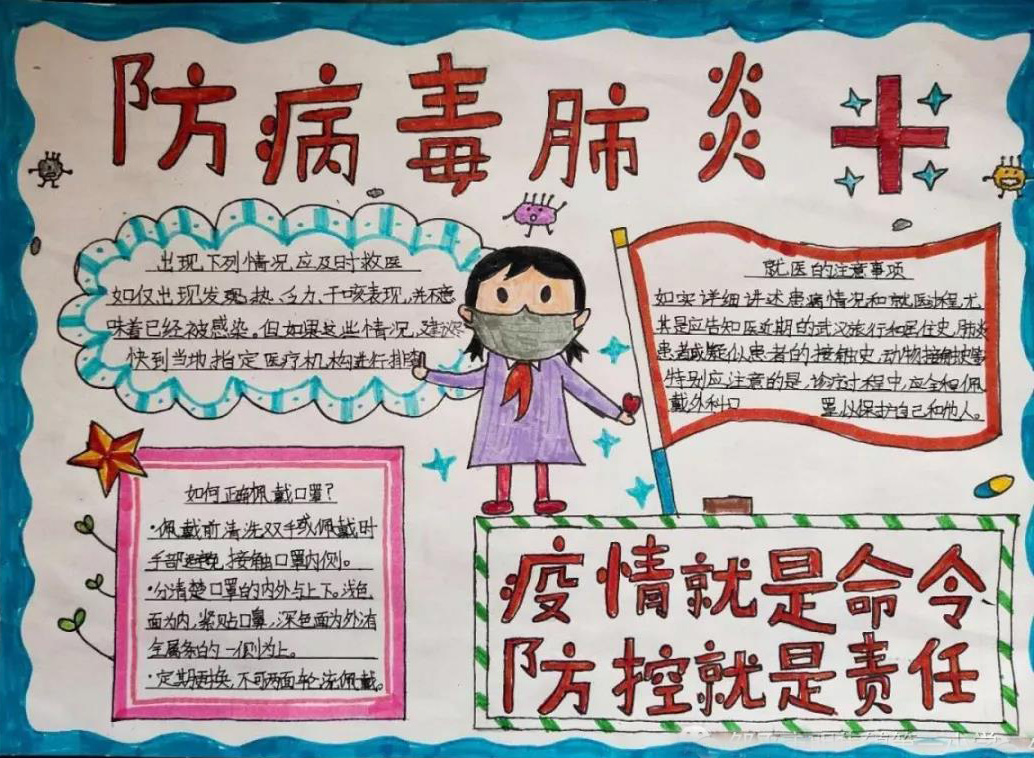 防病毒肺炎
出现下列情况应及时救医
如仅出现发现热、乏力、干咳表现,并不意
味着已经被感染。但如果这些情况,建议尽
快到当地指定医疗机构进行排
就医的注意事项
如实详细讲述患病情况和就医过程,尤
其是应告知医近期的武汉旅行和居住史,肺炎
患者或疑似患者的接触史,动物接触史等
特别应注意的是,诊疗过程中,应全程佩
戴外科口 罩,以保护自己和他人。
如何正确佩戴口罩?
·佩戴前清洗双手或佩戴时
手部避免接触口罩内侧。
·分清楚口罩的内外与上下。浅色
面为内,紧贴口鼻,深色面为外,有
金属条的一侧为上。
·定期更换,不可两面轮流佩戴。
疫情就是命令
防控就是责任